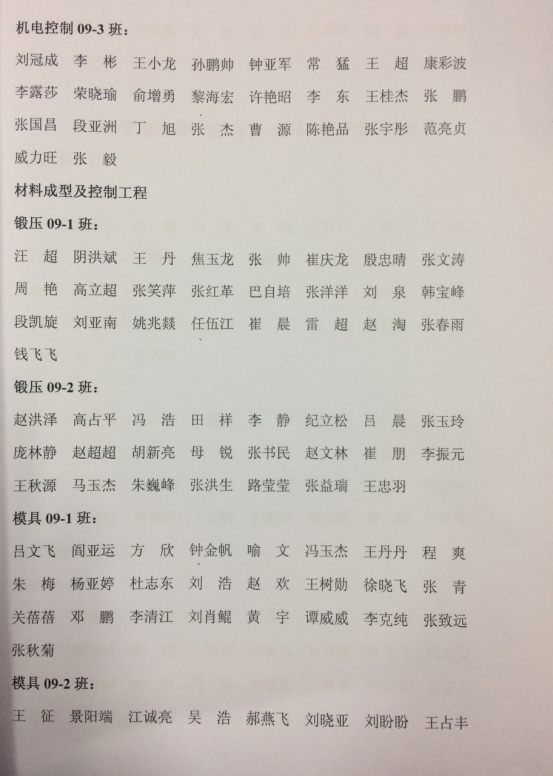 机电控制 09-3 班：
刘冠成 李 彬 王小龙 孙鹏帅 钟亚军 常 猛 王 超 康彩波
李露莎 荣晓瑜 俞增勇 黎海宏 许艳昭 李 东 王桂杰 张 鹏
张国昌 段亚洲 丁 旭 张 杰 曹 源 陈艳品 张宇彤 范亮贞
威力旺 张 毅
材料成型及控制工程
锻压 09-1 班：
汪 超 阴洪斌 王 丹 焦玉龙 张 帅 崔庆龙 殷忠晴 张文涛
周 艳 高立超 张笑萍 张红革 巴自培 张洋洋 刘 泉 韩宝峰
段凯旋 刘亚南 姚兆燚 任伍江 崔 晨 雷 超 赵 淘 张春雨
钱飞飞
锻压 09-2 班：
赵洪泽 高占平 冯 浩 田 祥 李 静 纪立松 吕 晨 张玉玲
庞林静 赵超超 胡新亮 母 锐 张书民 赵文林 崔 朋 李振元
王秋源 马玉杰 朱巍峰 张洪生 路莹莹 张益瑞 王忠羽
模具 09-1 班：
吕文飞 阎亚运 方 欣 钟金帆 喻 文 冯玉杰 王丹丹 程 爽
朱 梅 杨亚婷 杜志东 刘 浩 赵 欢 王树勋 徐晓飞 张 青
关蓓蓓 邓 鹏 李清江 刘肖鲲 黄 宇 谭威威 李克纯 张致远
张秋菊
模具 09-2 班：
王 征 景阳端 江诚亮 吴 浩 郝燕飞 刘晓亚 刘盼盼 王占丰